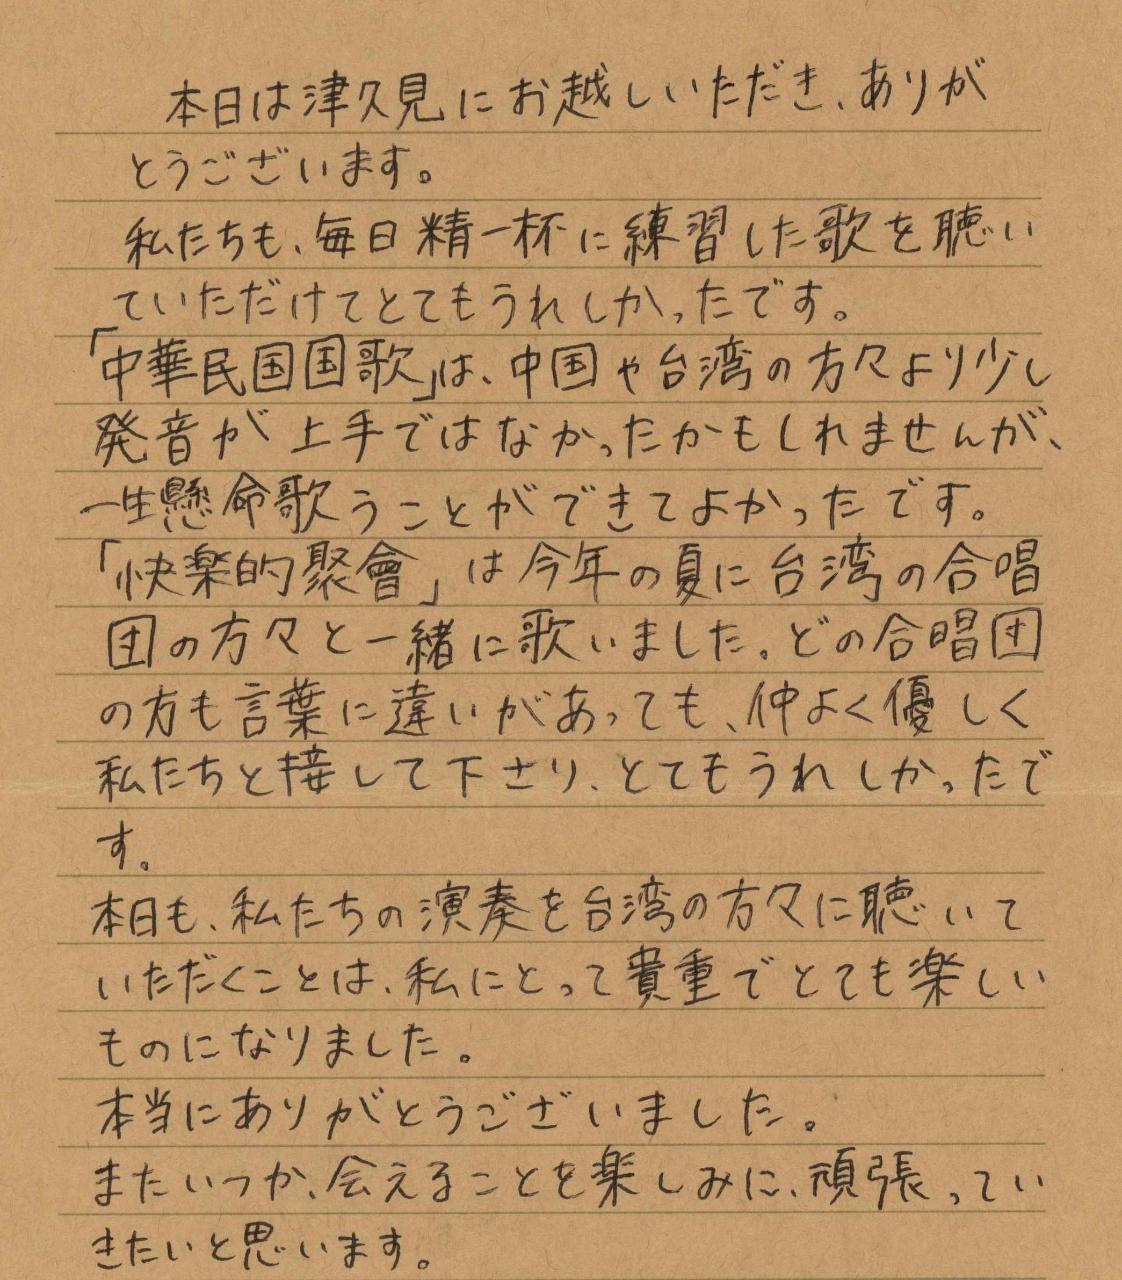 本日は津久見にお越しいただき、ありが
とうございます。
私たちも、毎日精一杯に練習した歌を聴い
ていただけてとてもうれしかったです。
「中華民国国歌」は、中国や台湾の方々より少し
発音が上手ではなかったかもしれませんが、
一生懸命歌うことができてよかったです。
「快楽的聚會」は今年の夏に台湾の合唱
団の方々と一緒に歌いました。どの合唱団
の方も言葉に違いがあっても、仲よく優しく
私たちと接して下さり、とてもうれしかったで
す。
本日も、私たちの演奏を台湾の方々に聴いて
いただくことは、私にとって貴重でとても楽しい
ものになりました。
本当にありがとうございました。
またいつか、会えることを楽しみに、頑張ってい
きたいと思います。